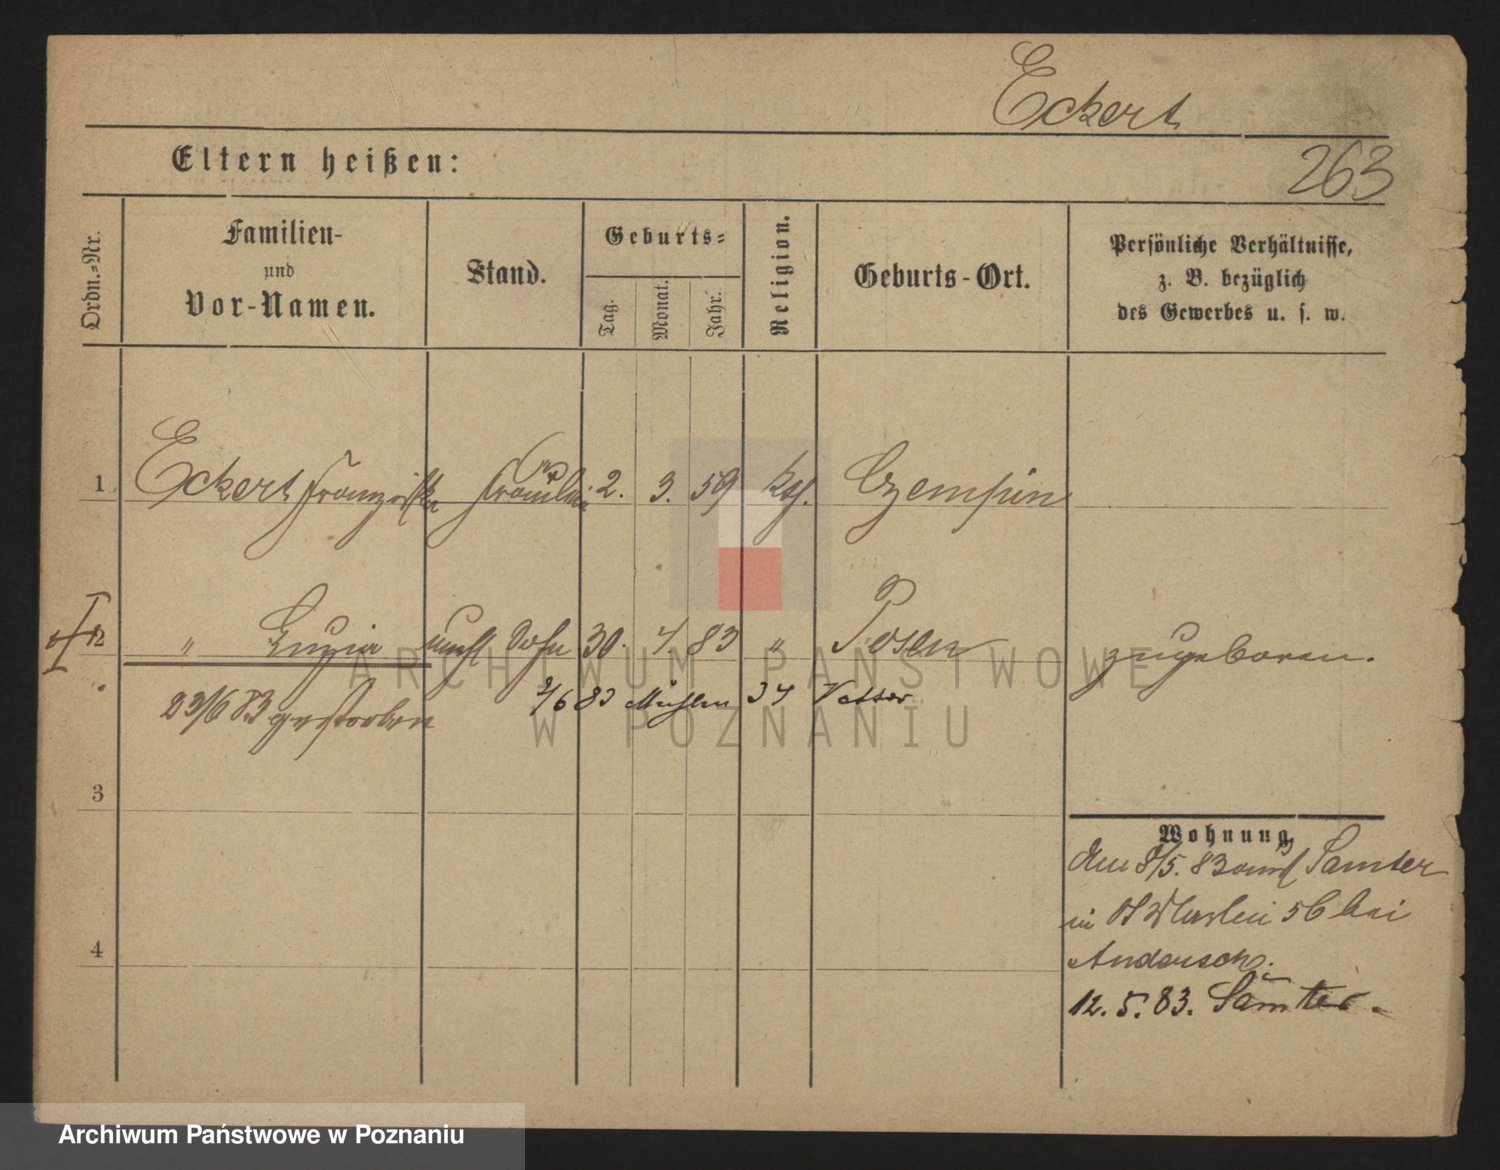 Eckert
Eltern heißen:
263
Ordn.-Nr.
Familien-
und
Vor-Namen.
Stand.
Geburts-
Tag.
Monat.
Jahr.
Religion.
Geburts-Ort.
Persönliche Verhältnisse,
z. B. bezüglich
des Gewerbes u. s. w.
1 Eckert Franziska Fräulein 2. 3. 59 kth. Czempin
2 " Luzia unehl 30. 4. 83 " Posen zugeboren.
23/6 83 gestorben 2/6 83 Mühlen 34 Vetter
3
Wohnung
Am 8/5. 83 aus Samter
in 56 bei
4
Andersch.
12. 5. 83. Samter.
ARCHIWUM PAŃSTWOWE
W POZNANIU
Archiwum Państwowe w Poznaniu